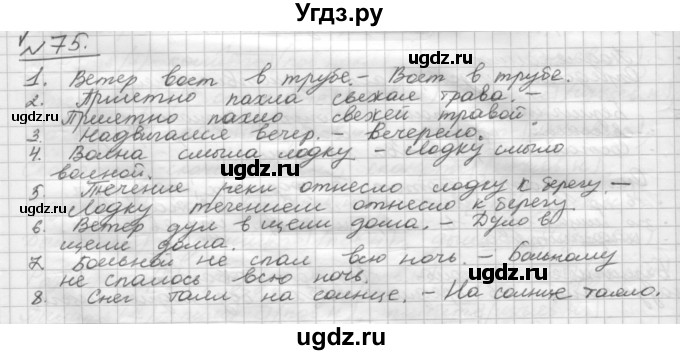 Угдз.ру
№75.
1. Ветер воет в трубе. – Воет в трубе.
2. Приятно пахла свежая трава. –
Приятно пахло свежей травой.
3 Надвигался вечер. – Вечерело.
4. Волна смыла лодку – Лодку смыло
волной.
5. Течение реки отнесло лодку к берегу. –
Лодку течением отнесло к берегу
6. Ветер дул в щели дома. – Дуло в
щели дома.
7. Больной не спал всю ночь. – Больному
не спалось всю ночь.
8. Снег таял на солнце. – На солнце таяло.
uгдz.ru
uгдz.ru
uгдz.ru
uгдz.ru
uгдz.ru
uгдz.ru